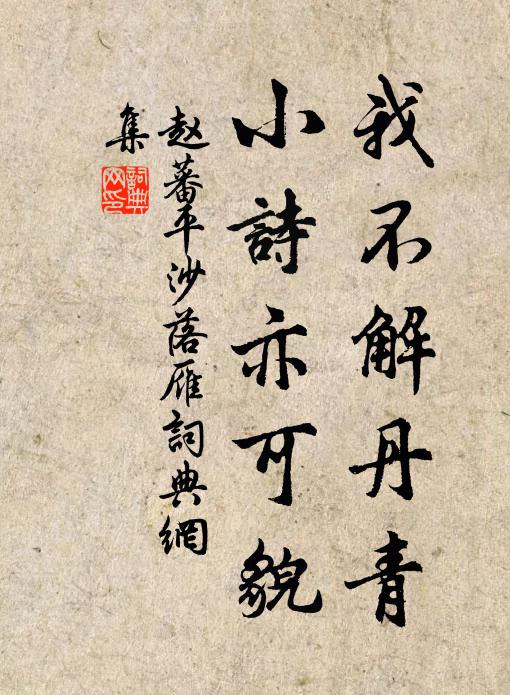 我不解丹青
小詩亦可貌
赵蕃平沙落雁詞典網
集
詞典
网印